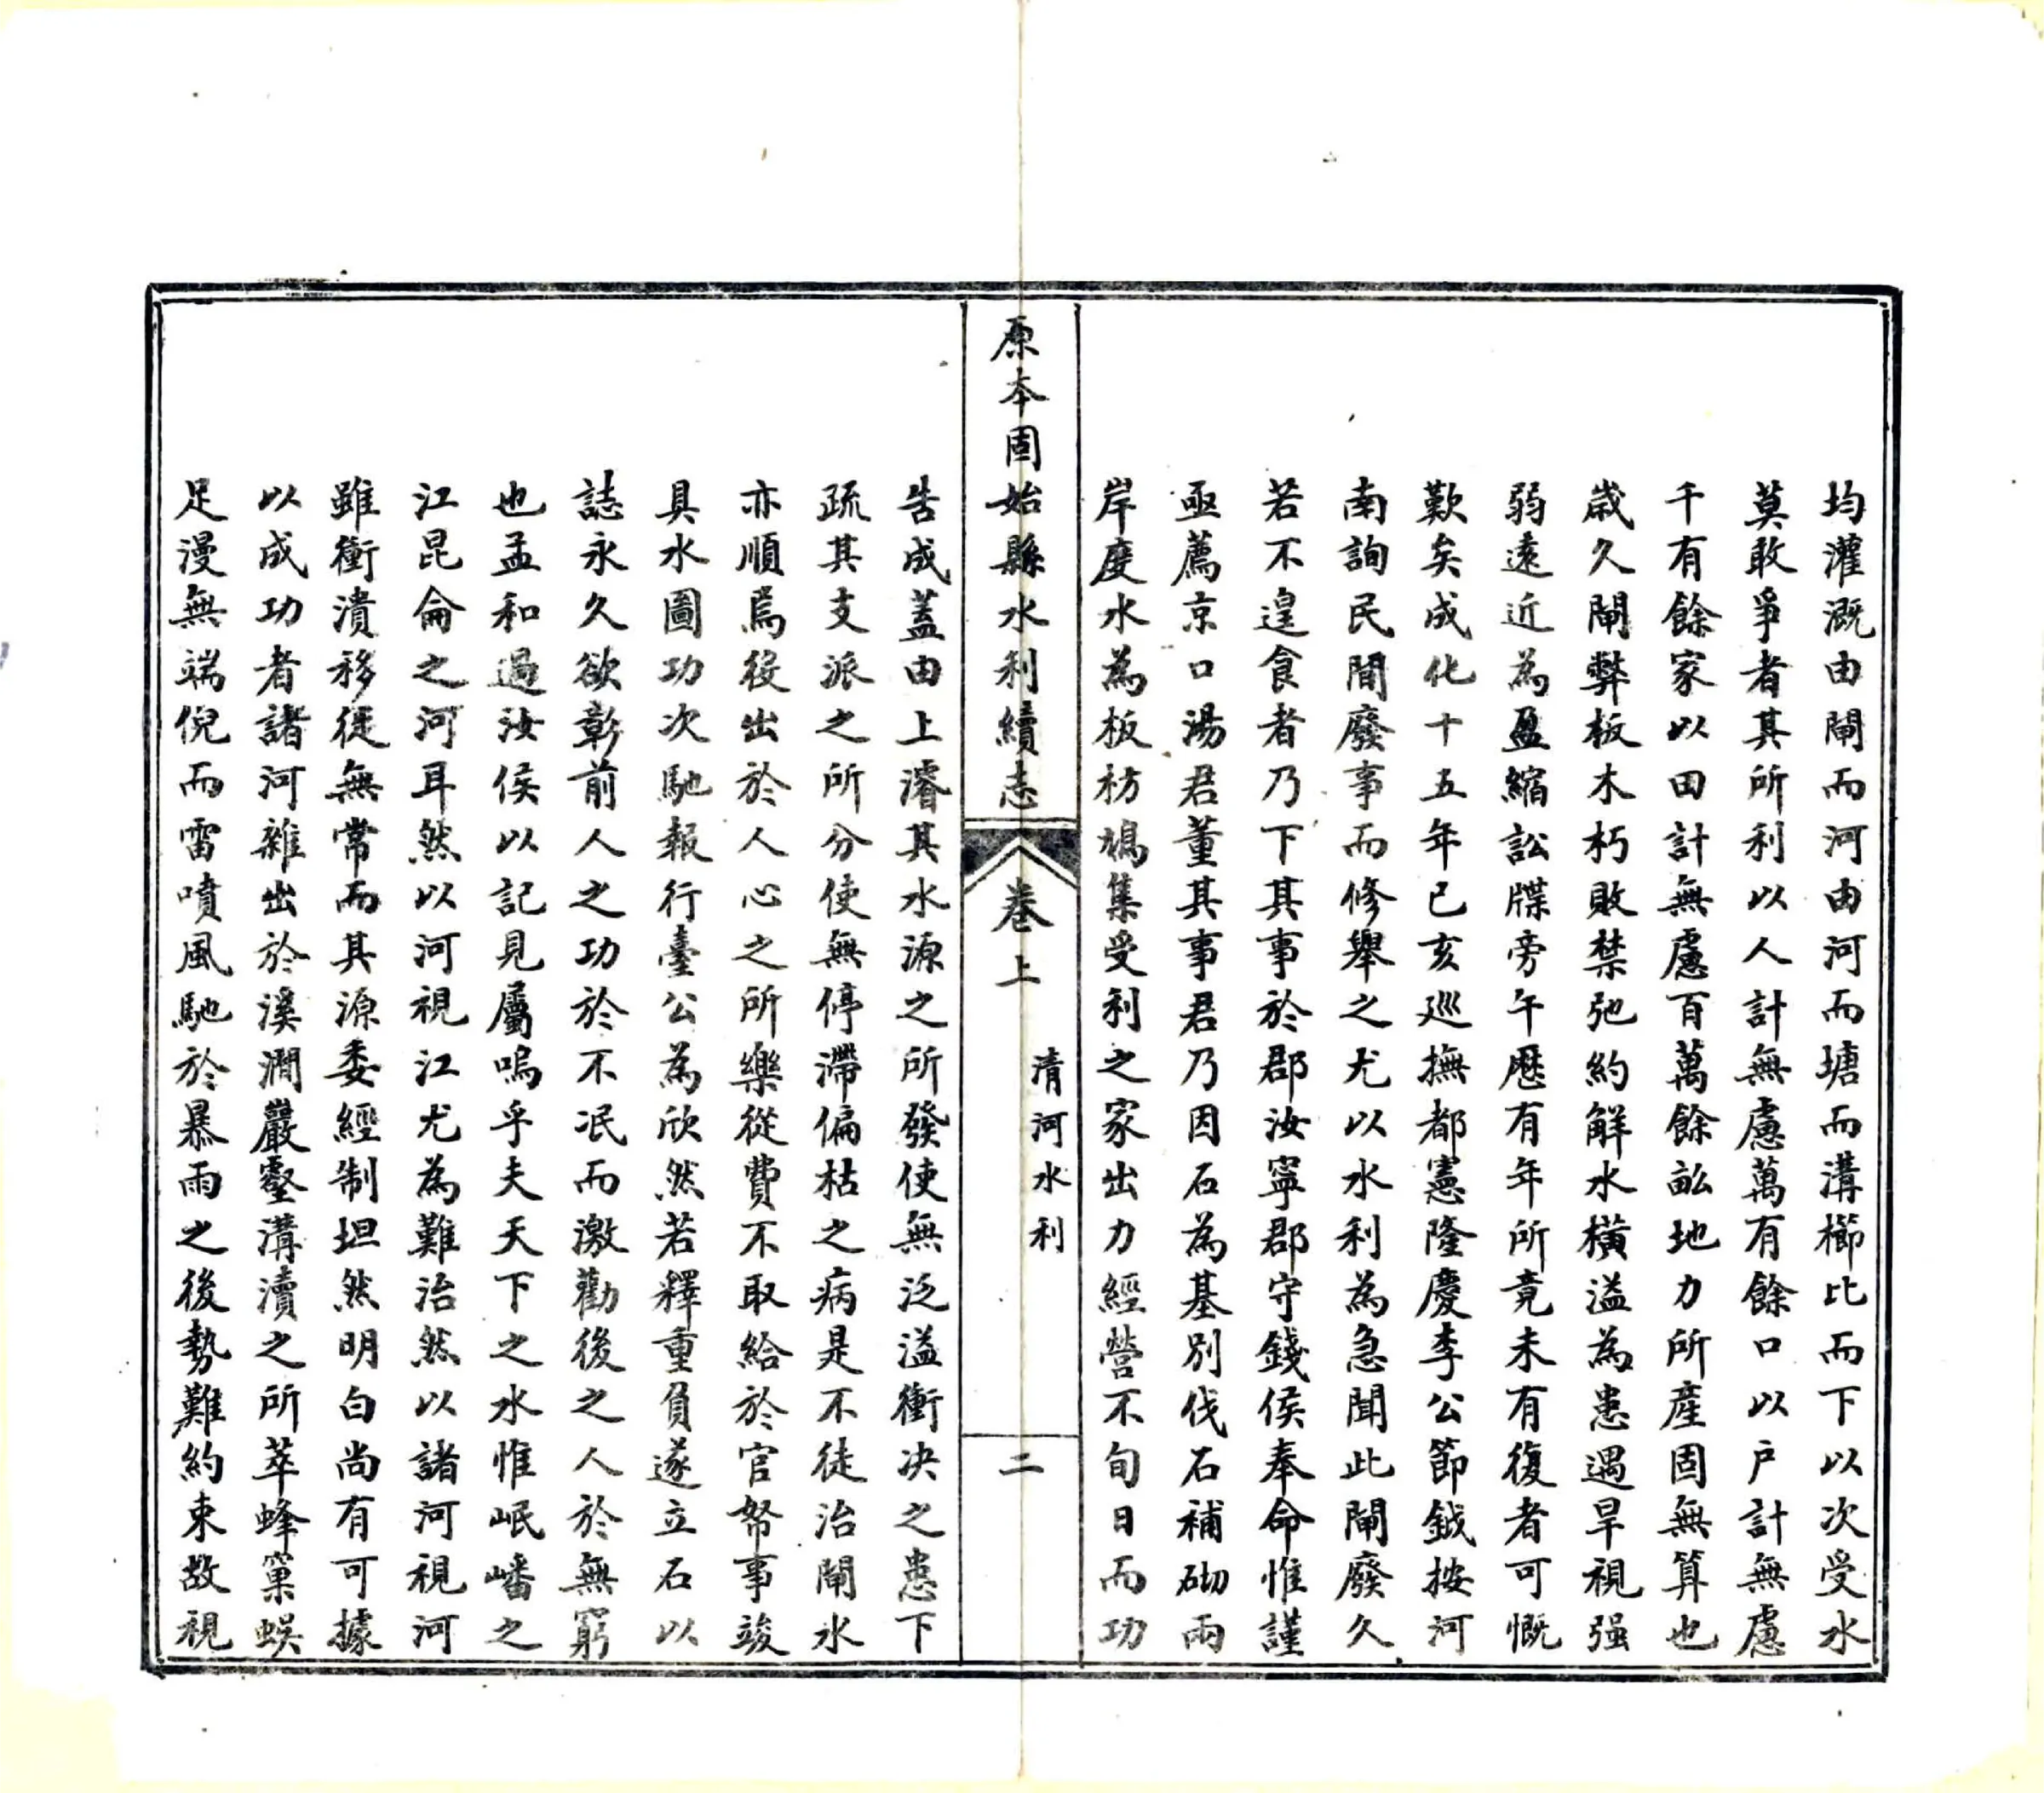 均灌溉由閘而河由河而塘而溝櫛比而下以次受水
莫敢爭者其所利以人計無慮萬有餘口以戶計無慮
千有餘家以田計無慮百萬餘畝地力所產固無算也
歲久閘弊板木朽敗禁弛約解水橫溢為患遇旱視强
弱遠近為盈縮訟牒旁午歷有年所竟未有復者可慨
歎矣成化十五年已亥廵撫都憲隆慶李公節鉞按河
南詢民間廢事而修舉之尤以水利為急聞此閘廢久
若不遑食者乃下其事於郡汝寧郡守錢侯奉命惟謹
亟薦京口湯君董其事君乃因石為基別伐石補砌兩
岸度水為板枋鳩集受利之家出力經營不旬日而功
原本固始縣水利續志
卷上
清河水利
二
告成蓋由上濬其水源之所發使無泛溢衝决之患下
疏其支派之所分使無停滯偏枯之病是不徒治閘水
亦順焉役出於人心之所樂從費不取給於官帑事竣
具水圖功次馳報行臺公為欣然若釋重負遂立石以
誌永久欲彰前人之功於不泯而激勸後之人於無窮
也孟和過汝侯以記見屬嗚乎夫天下之水惟岷嶓之
江昆侖之河耳然以河視江尤為難治然以諸河視河
雖衝潰移徙無常而其源委經制坦然明白尚有可據
以成功者諸河雜出於溪澗巖壑溝瀆之所萃蜂窠蜈
足漫無端倪而雷噴風馳於暴雨之後勢難約束故視